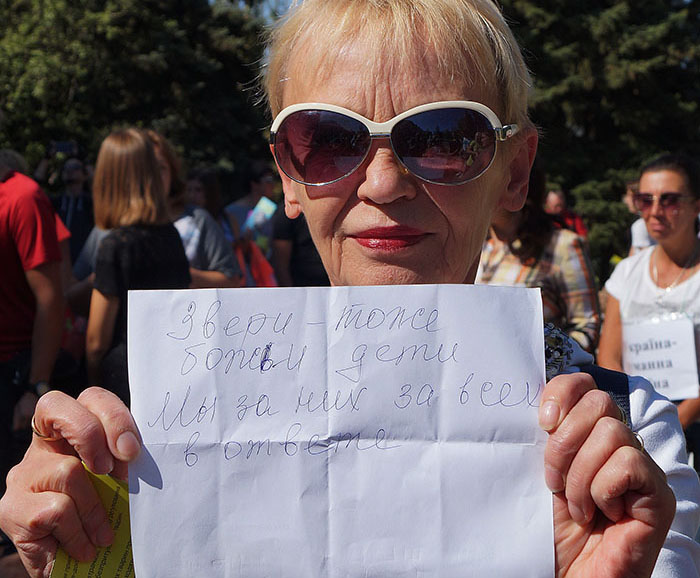 Звери - тоже
божьи дети
Мы за них за всех
в ответе
країна-
манна